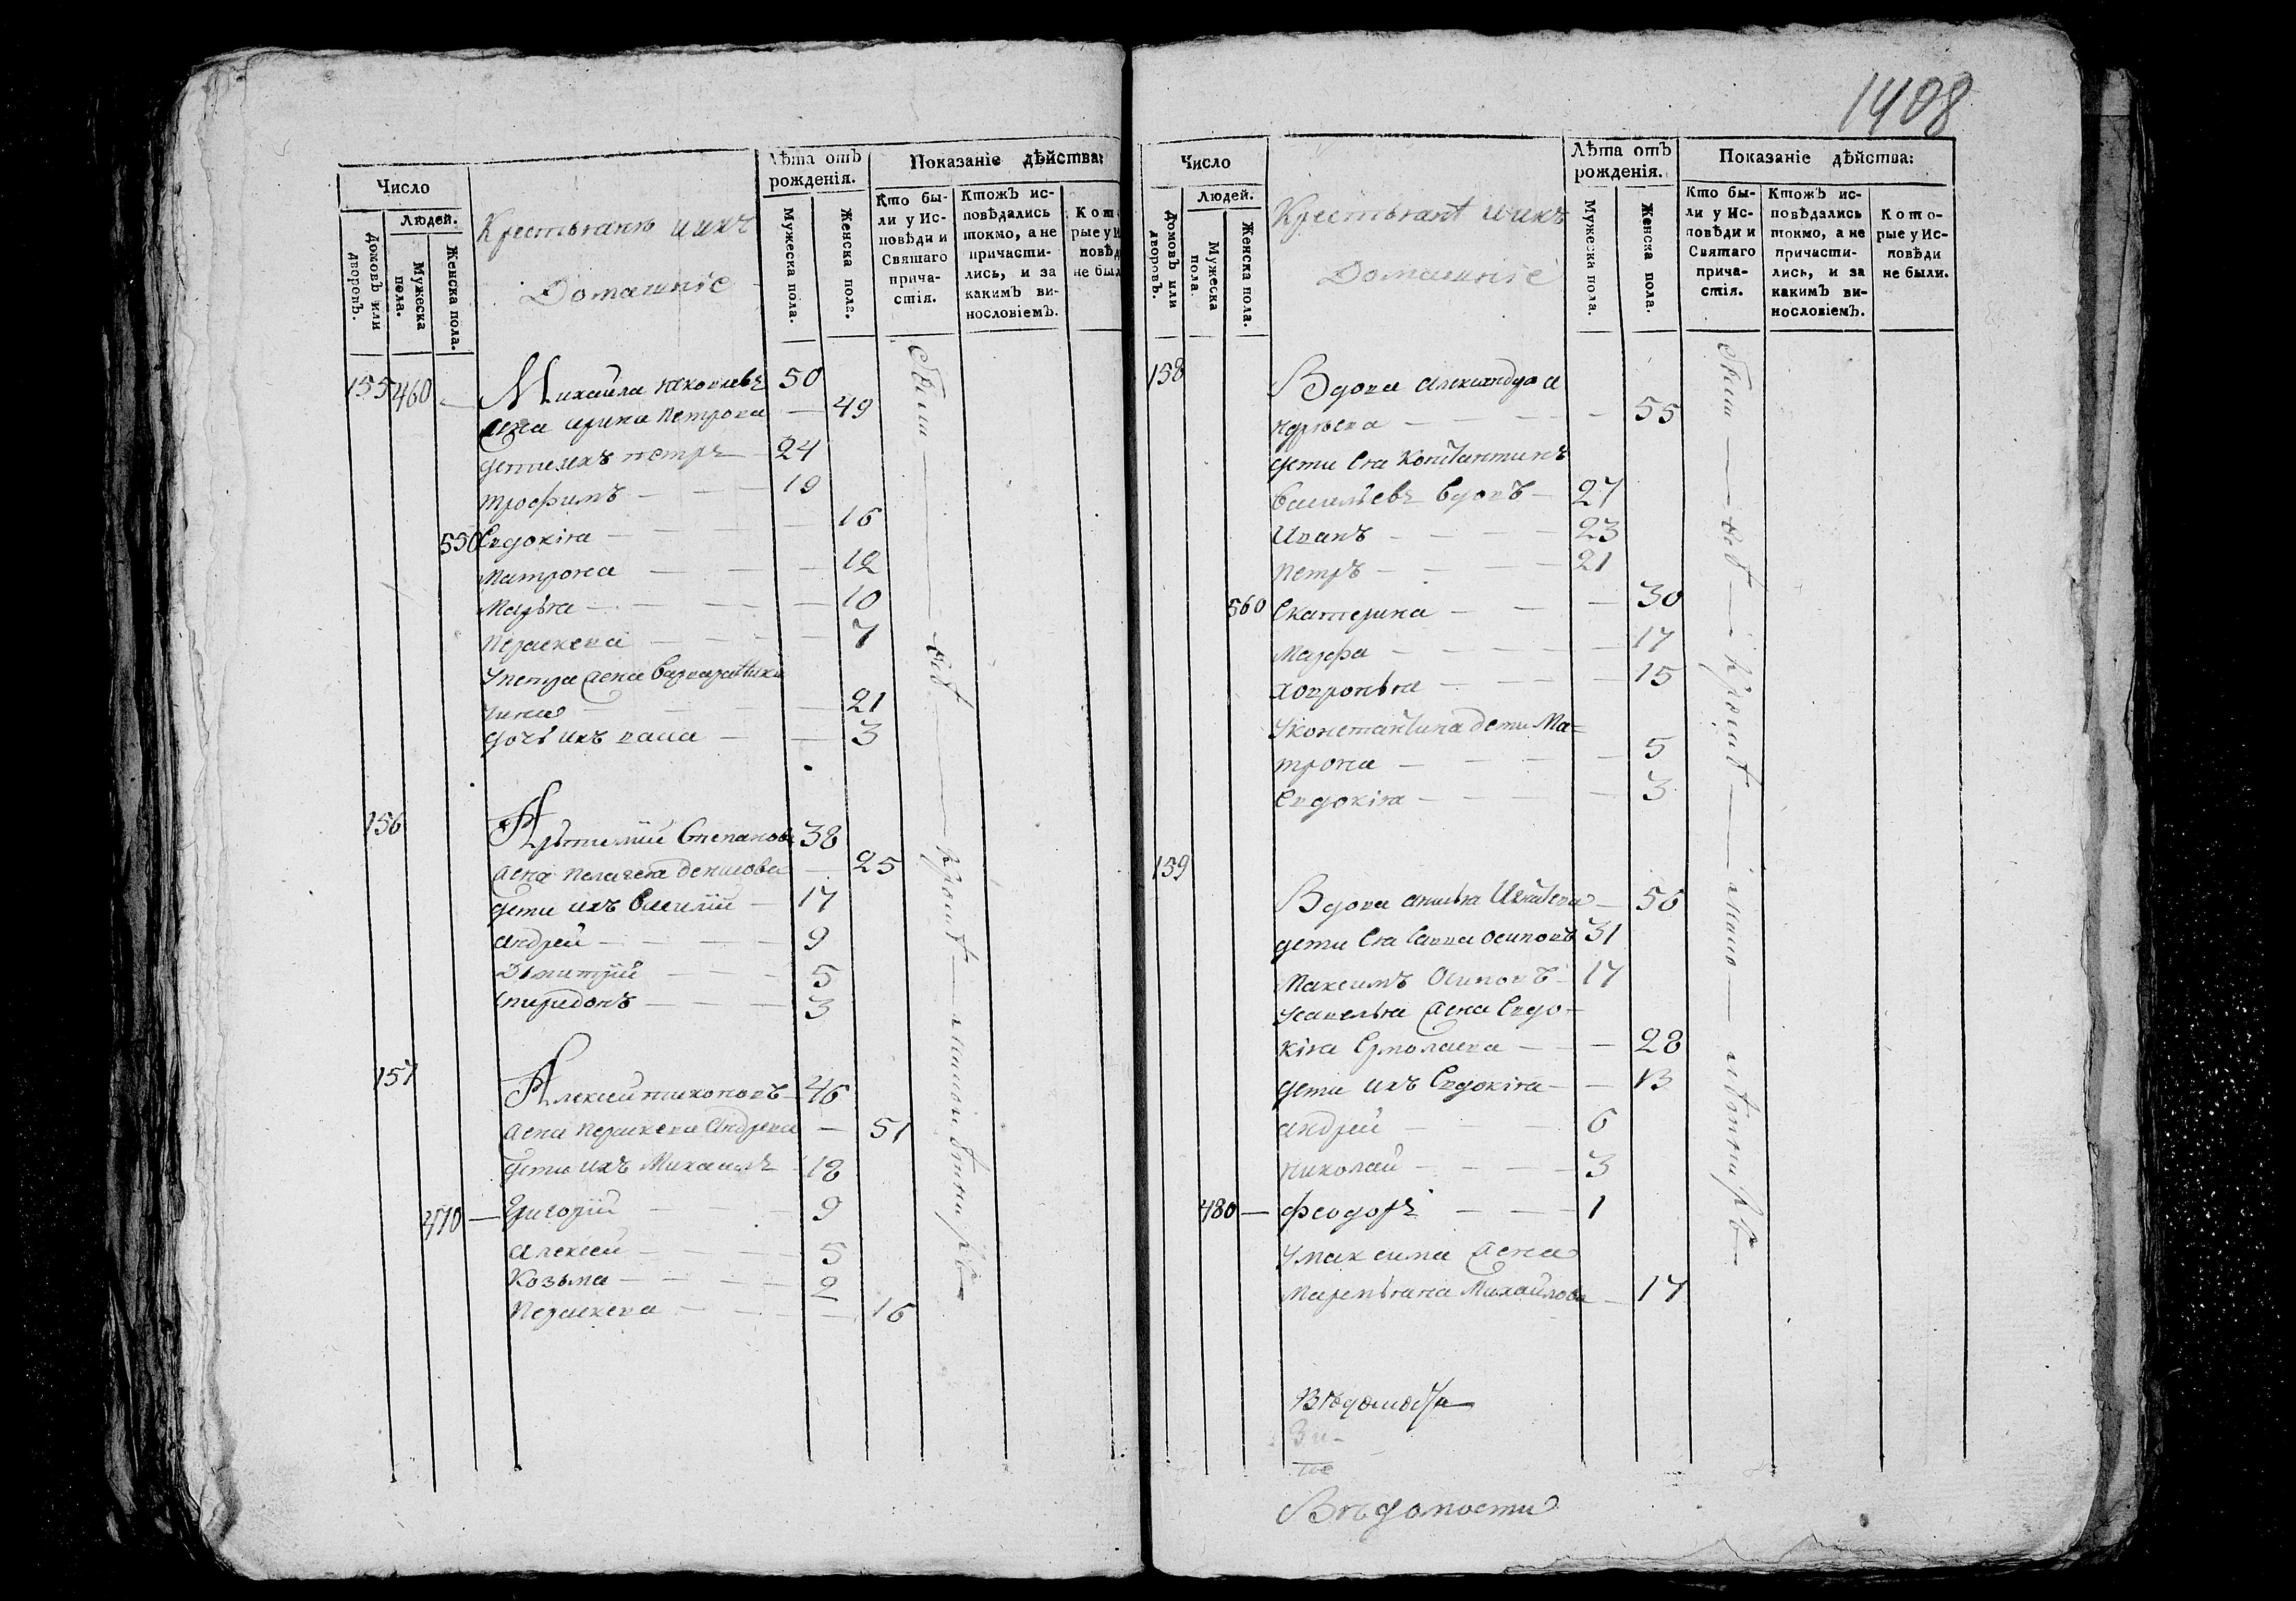 Число
Людей.
Домовъ или дворовъ.
Мужеска пола.
Женска пола.
Крестьянъ ихъ
Домашніе
Лѣта отъ рожденія.
Мужеска пола.
Женска пола.
Показаніе дѣйства:
Кто бы-
ли у Ис-
повѣди и
Святаго
прича-
стія.
Ктожъ ис-
повѣдались
токмо, а не
причасти-
лись, и за
какимъ ви-
нословіемъ.
Кото
рые у И
повѣд
не был
155 460 Михаила Яковлевъ 50
жена ирина Петрова 49
дети ихъ петръ 24
трофимъ 19
550 Евдокія 16
матрона 12
Марья 10
Параскева 7
У петра жена Варвара
21
дочь ихъ васа 3
156 Артемій Степановъ 38
жена Пелагея Денисова 25
дети ихъ Василій 17
андрей 9
Дмитрій 5
спиридонъ 3
157 Алексей тихоновъ 46
жена Параскева Андреева 51
дети ихъ Михаилъ 18
470 Григорій 9
алексей 5
Козьма 2
Параскева 16
были
1408
Число
Людей.
Домовъ или дворовъ.
Мужеска пола.
Женска пола.
Крестьянъ ихъ
Домашніе
Лѣта отъ рожденія.
Мужеска пола.
Женска пола.
Показаніе дѣйства:
Кто бы-
ли у Ис-
повѣди и
Святаго
прича-
стія.
Ктожъ ис-
повѣдались
токмо, а не
причасти-
лись, и за
какимъ ви-
нословіемъ.
Кото-
рые у Ис-
повѣди
не были.
158 Вдова александра а
ндреева 55
дети Ея Константинъ
Васильевъ вдовъ 27
Иванъ 23
петръ 21
560 Екатерина 30
Марфа 17
хавронья 15
У константина дети Ма=
трона 5
Евдокія 3
159 Вдова анисья 56
дети Ея Савва осиповъ 31
Максимъ Осиповъ 17
У савелья жена Евдо-
кія Ермолаева 28
дети ихъ Евдокія 13
андрей 6
николай 3
480 феодоръ 1
У максима жена
Маремьяна Михайлова 17
были
Ведомости